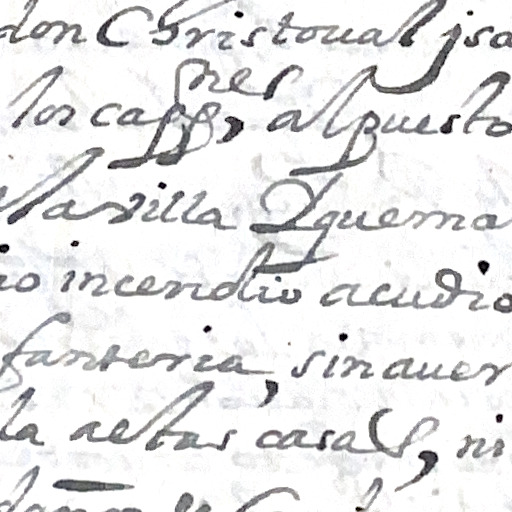 don Christoual jsa
los cappnes, al puesto
la villa Quema
io incendio acudio
fanteria, sin auer
la aestas casas, ni